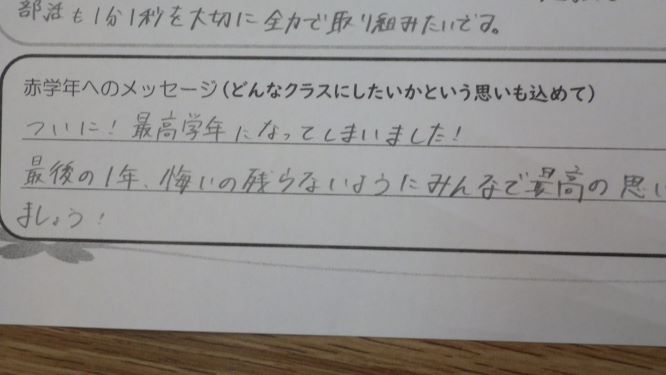 部活も1分1秒を大切に全力で取り組みたいです。
赤学年へのメッセージ(どんなクラスにしたいかという思いも込めて)
ついに!最高学年になってしまいました!
最後の1年、悔いの残らないようにみんなで最高の思い
ましょう!